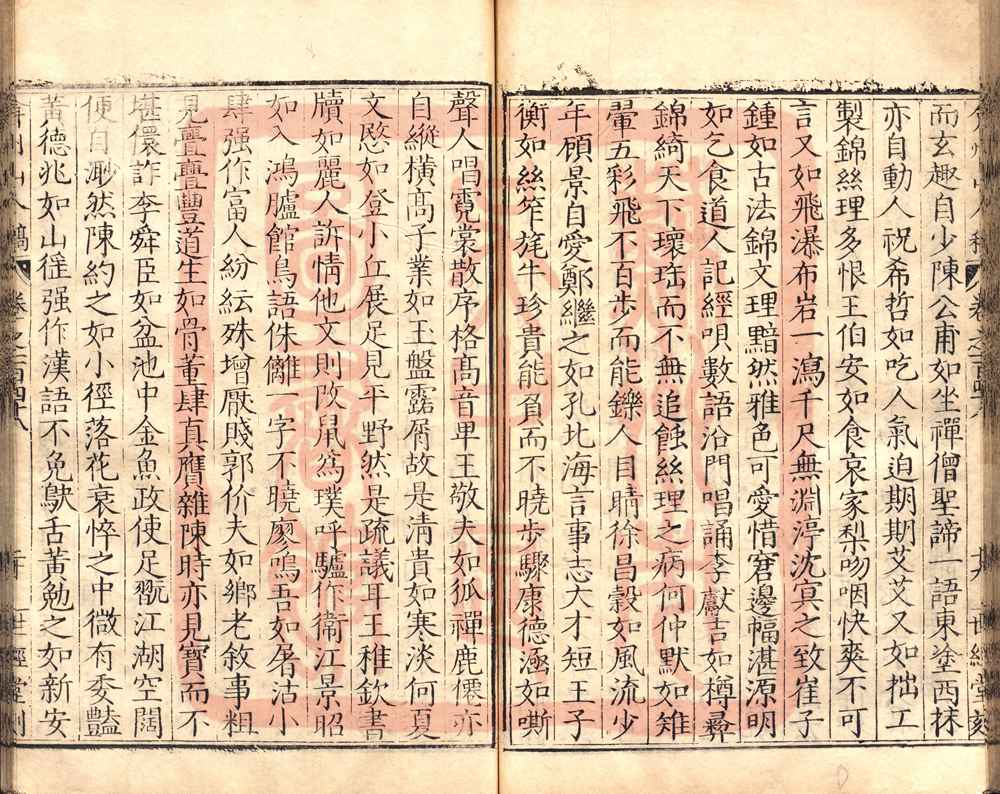 弇州山人稿 卷之一百四十八 世經堂刻
而玄趣自少陳公甫如坐禪僧聖諦一語東塗西抹
亦自動人祝希哲如吃人氣迫期期艾艾又如拙工
製錦絲理多恨王伯安如食哀家梨吻咽快爽不可
言又如飛瀑布岩一瀉千尺無淵渟沈冥之致崔子
鍾如古法錦文理黯然雅色可愛惜窘邊幅湛源明
如乞食道人記經唄數語沿門唱誦李獻吉如樽彝
錦綺天下瓌珤而不無追蝕絲理之病何仲默如雉
翬五彩飛不百步而能鑠人目睛徐昌榖如風流少
年顧景自愛鄭繼之如孔北海言事志大才短王子
衡如絲笮旄牛珍貴能負而不曉步驟康德涵如嘶
聲人唱霓裳散序格高音卑王敬夫如狐禪鹿僊亦
自縱橫高子業如玉盤露屑故是清貴如寒淡何夏
文愍如登小丘展足見平野然是疏議耳王稚欽書
牘如麗人訴情他文則改鼠為璞呼驢作衛江景昭
如入鴻臚館鳥語侏離一字不曉廖鳴吾如屠沽小
肆强作富人紛紜殊增厭賤郭价夫如鄉老敘事粗
見亹亹豐道生如骨董肆真贋雜陳時亦見寶而不
堪儇詐李舜臣如盆池中金魚政使足翫江湖空闊
便自渺然陳約之如小徑落花衰悴之中微有委豔
黃德兆如山徭强作漢語不免鴃舌黃勉之如新安
弇州山人稿 卷之一百四十八 世經堂刻